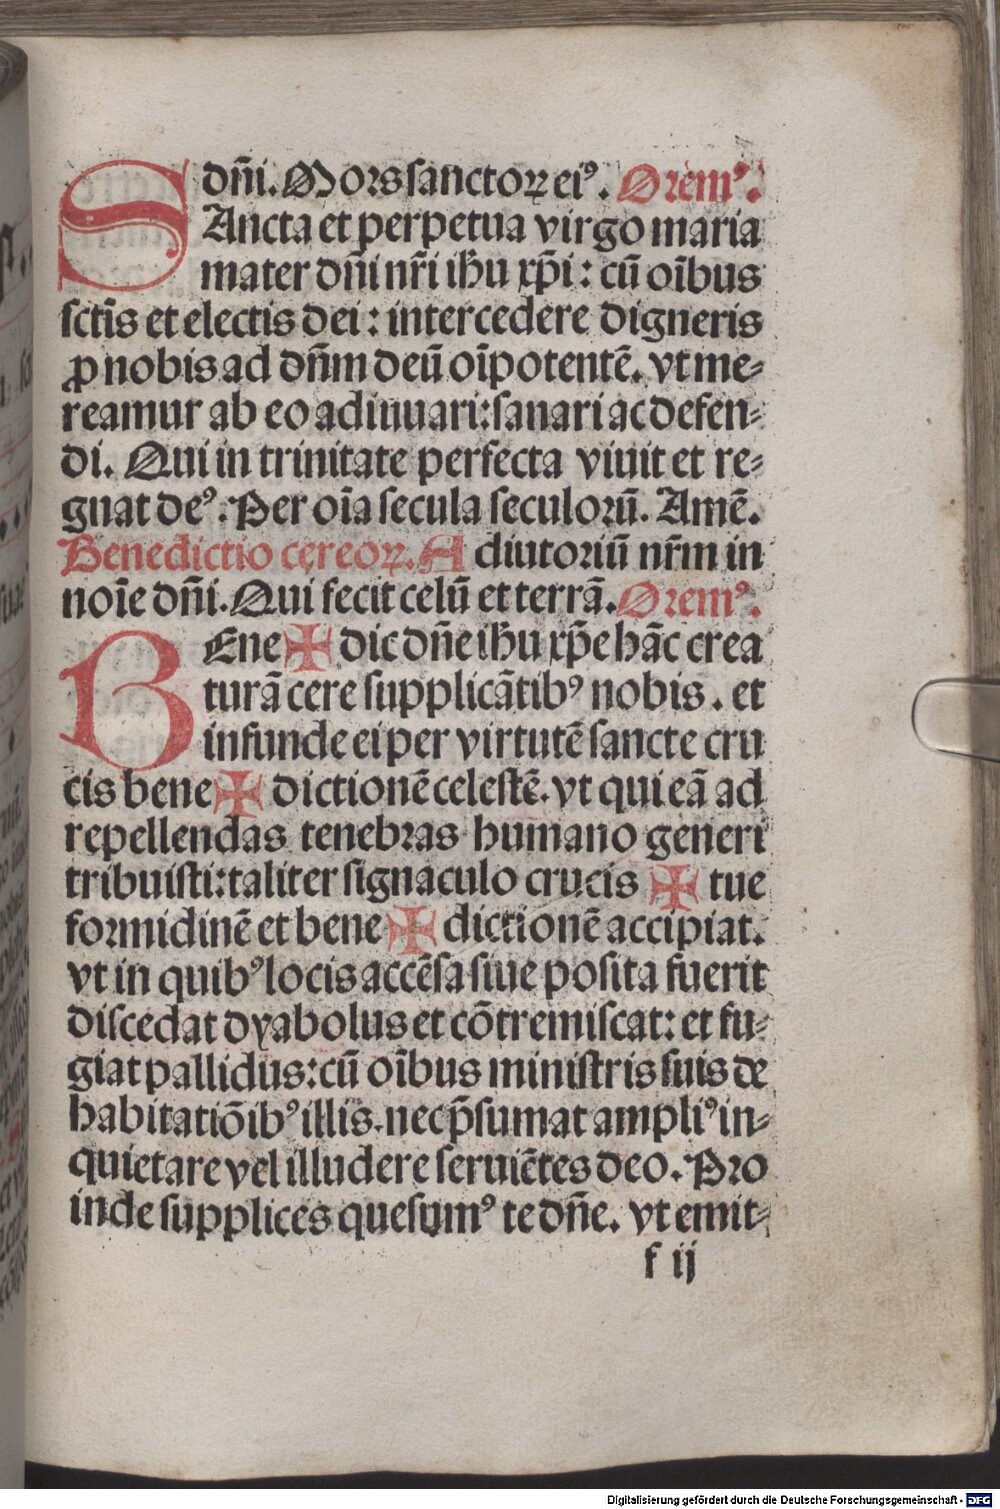 dñi. Mors sanctoꝝ ei⁹. Orem⁹.
SAncta et perpetua virgo maria
mater dñi nr̃i ihũ xp̃i : cũ oĩbus
sctĩs et electis dei : intercedere digneris
ꝓ nobis ad dñm deũ oĩpotentẽ. vt me⸗
reamur ab eo adinuari: sanari ac defen⸗
di. Qui in trinitate perfecta viuit et re⸗
gnat de⁹. Per oĩa secula seculorũ. Amẽ.
Benedictio cereoꝝ. Adiutoriũ nr̃m in
noĩe dñi. Qui fecit celũ et terrã. Orem⁹.
BEne ✠ dic dñe ihũ xp̃e hãc crea
turã cere supplicãtib⁹ nobis. et
infunde ei per virtutẽ sancte cru
cis bene ✠ dictionẽ celestẽ. vt qui eã ad
repellendas tenebras humano generi
tribuisti: taliter signaculo crucis ✠ tue
formidinẽ et bene ✠ dictionẽ accipiat.
vt in quib⁹ locis accẽsa siue posita fuerit
discedat dyabolus et cõtremiscat: et fu⸗
giat pallidus: cũ oĩbus ministris suis de
habitatiõib⁹ illis. nec p̃sumat ampli⁹ in⸗
quietare vel illudere seruiẽtes deo. Pro
inde supplices quesum⁹ te dñe. vt emit⸗
f ij
Digitalisierung gefördert durch die Deutsche Forschungsgemeinschaft - DFG